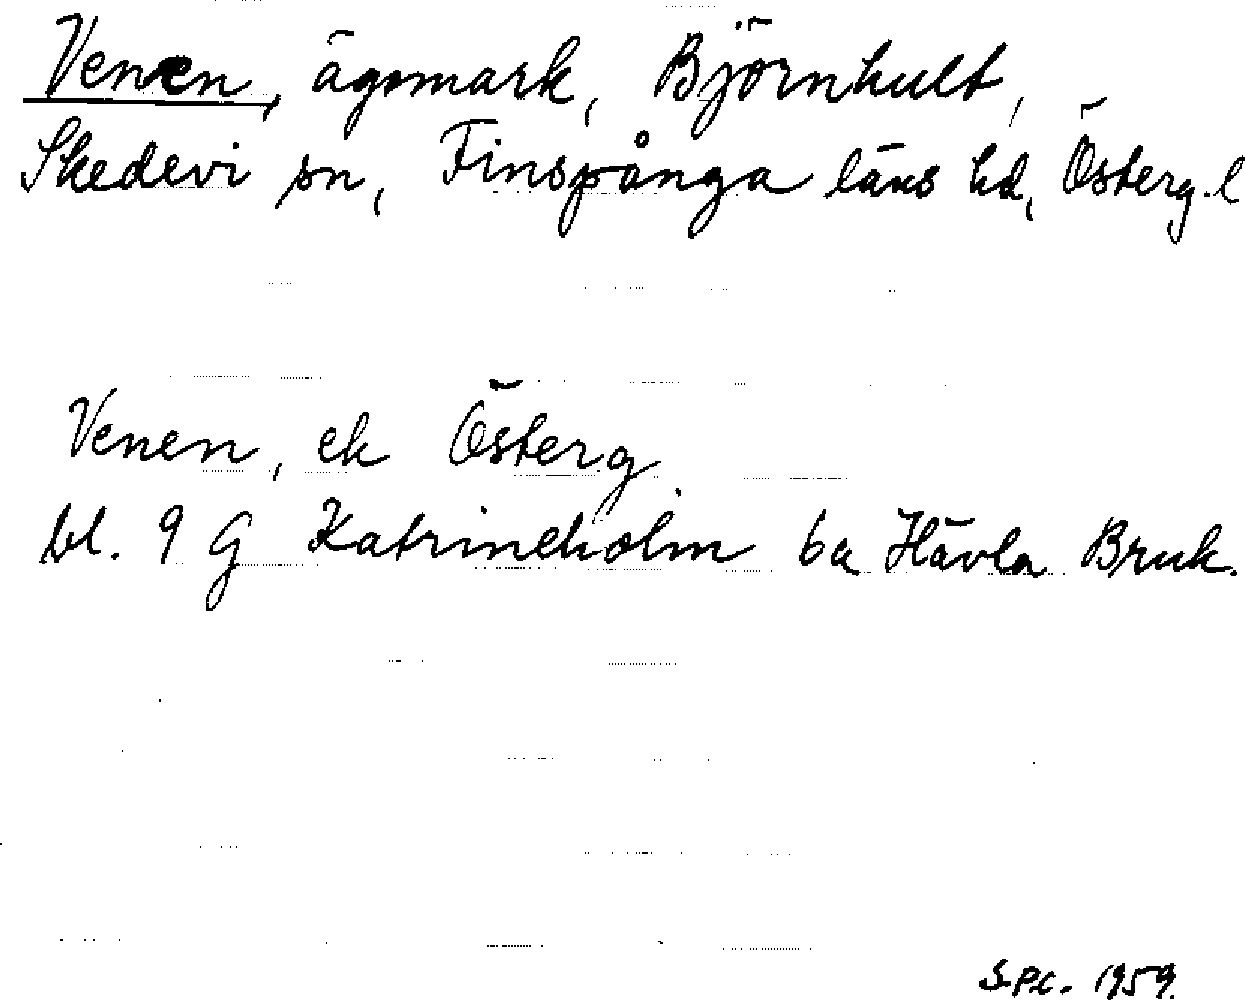 Venen, ägomark, Björnhult,
Skedevi sn, Finspånga läns hd, Österg. l
Venen, ek Österg
bl. 9 G Katrineholm 6a Hävla Bruk.
S.P.C. 1959.